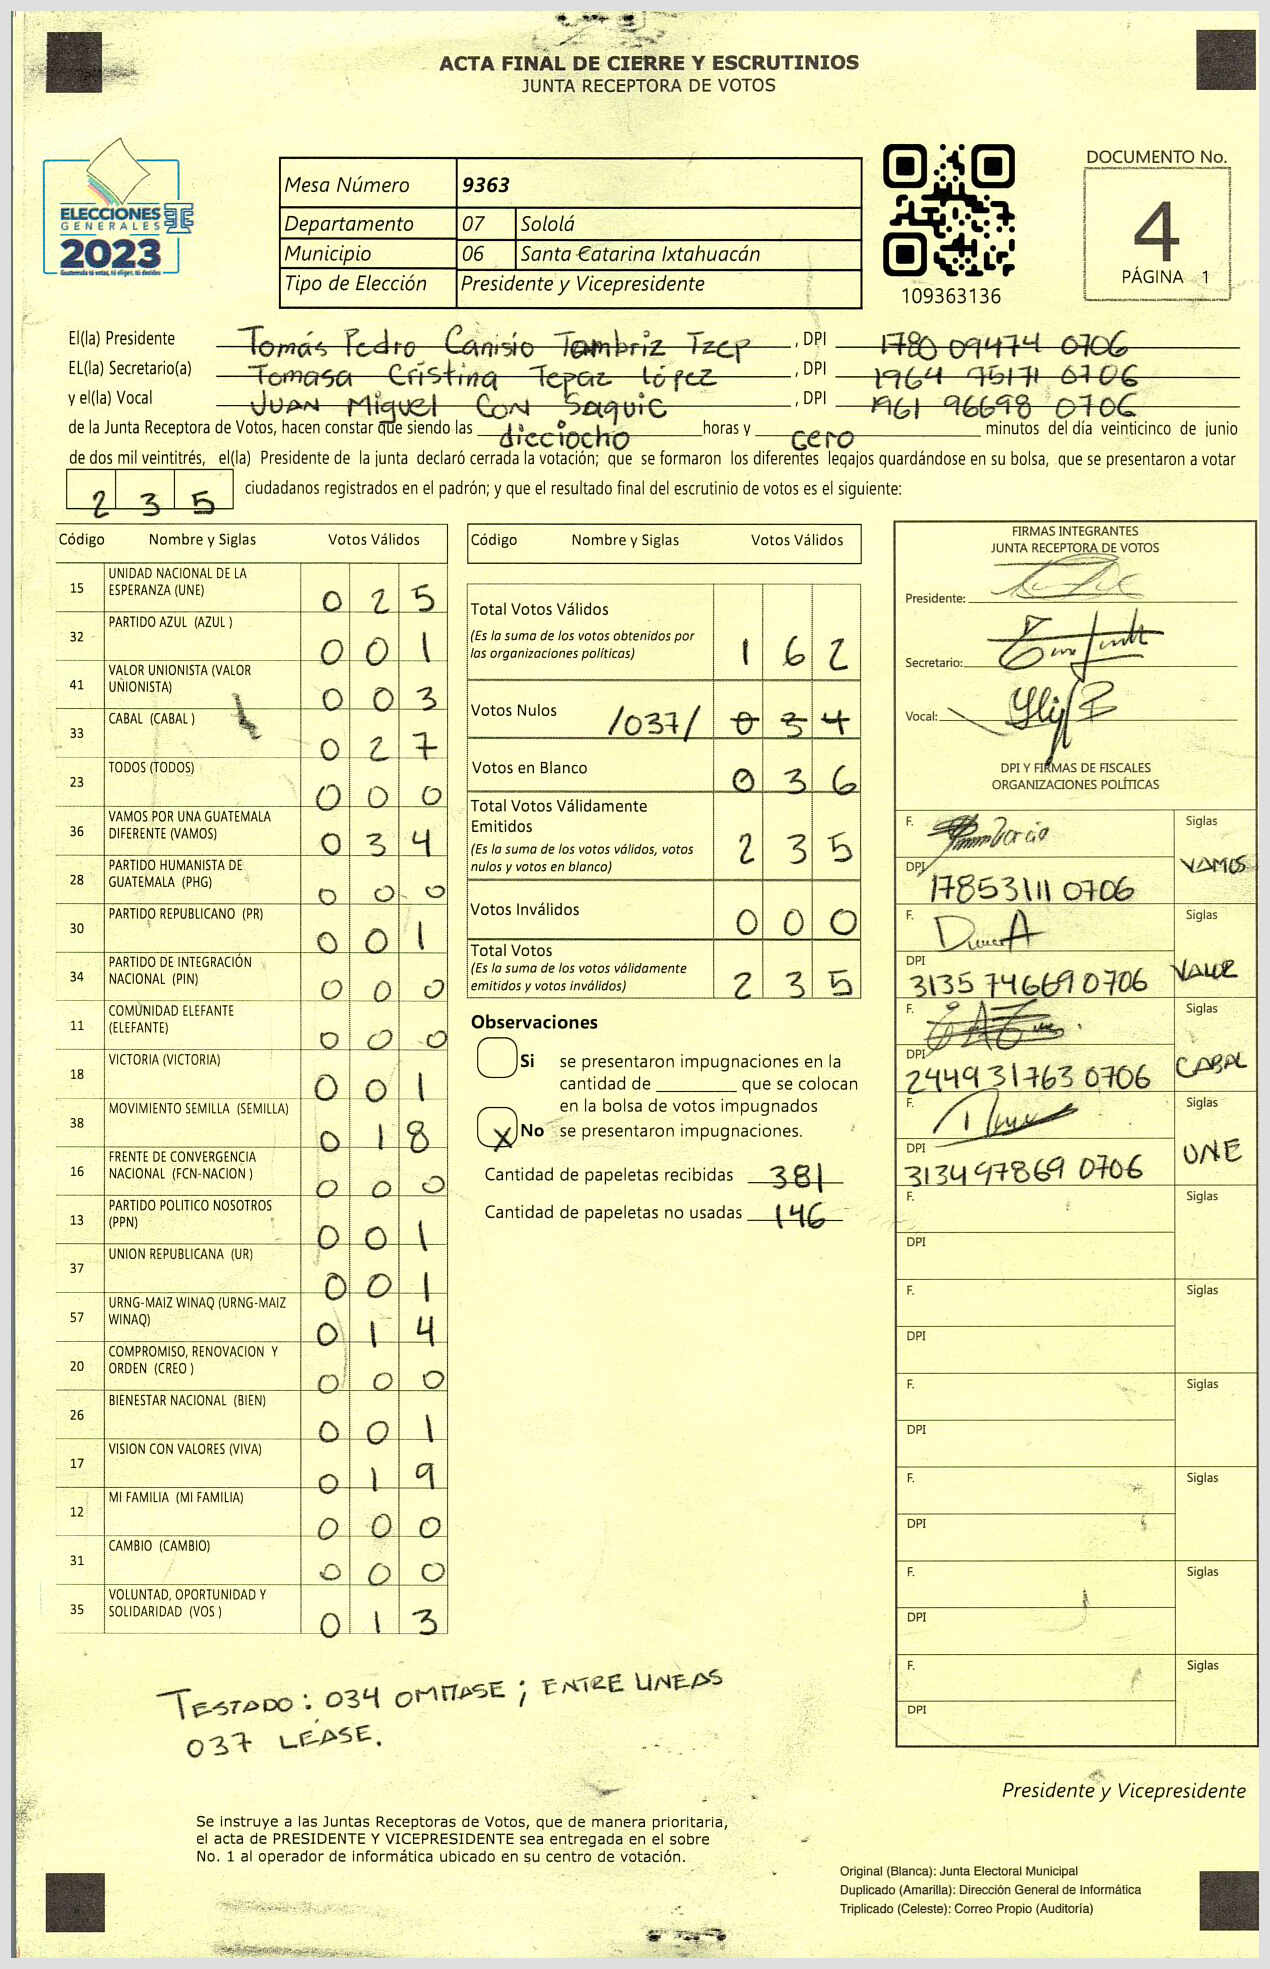 ACTA FINAL DE CIERRE Y ESCRUTINIOS
JUNTA RECEPTORA DE VOTOS
ELECCIONES
GENERALES
2023
Guatemala tú votas, tú eliges, tú decides
Mesa Número 9363
Departamento 07 Sololá
Municipio 06 Santa Catarina Ixtahuacán
Tipo de Elección Presidente y Vicepresidente
109363136
DOCUMENTO No.
4
PÁGINA 1
El(la) Presidente Tomás Pedro Canisio Tambriz Tzep , DPI 1780 09474 0706
EL(la) Secretario(a) Tomasa Cristina Tepaz López , DPI 1964 95171 0706
y el(la) Vocal JUAN Miguel CON Saquic , DPI 1961 96698 0706
de la Junta Receptora de Votos, hacen constar que siendo las dieciocho horas y cero minutos del día veinticinco de junio
de dos mil veintitrés, el(la) Presidente de la junta declaró cerrada la votación; que se formaron los diferentes legajos guardándose en su bolsa, que se presentaron a votar
2 3 5 ciudadanos registrados en el padrón; y que el resultado final del escrutinio de votos es el siguiente:
Código Nombre y Siglas Votos Válidos
15 UNIDAD NACIONAL DE LA
ESPERANZA (UNE) 0 2 5
32 PARTIDO AZUL (AZUL ) 0 0 1
41 VALOR UNIONISTA (VALOR
UNIONISTA) 0 0 3
33 CABAL (CABAL ) 0 2 7
23 TODOS (TODOS) 0 0 0
36 VAMOS POR UNA GUATEMALA
DIFERENTE (VAMOS) 0 3 4
28 PARTIDO HUMANISTA DE
GUATEMALA (PHG) 0 0 0
30 PARTIDO REPUBLICANO (PR) 0 0 1
34 PARTIDO DE INTEGRACIÓN
NACIONAL (PIN) 0 0 0
11 COMUNIDAD ELEFANTE
(ELEFANTE) 0 0 0
18 VICTORIA (VICTORIA) 0 0 1
38 MOVIMIENTO SEMILLA (SEMILLA) 0 1 8
16 FRENTE DE CONVERGENCIA
NACIONAL (FCN-NACION ) 0 0 0
13 PARTIDO POLITICO NOSOTROS
(PPN) 0 0 1
37 UNION REPUBLICANA (UR) 0 0 1
57 URNG-MAIZ WINAQ (URNG-MAIZ
WINAQ) 0 1 4
20 COMPROMISO, RENOVACION Y
ORDEN (CREO ) 0 0 0
26 BIENESTAR NACIONAL (BIEN) 0 0 1
17 VISION CON VALORES (VIVA) 0 1 9
12 MI FAMILIA (MI FAMILIA) 0 0 0
31 CAMBIO (CAMBIO) 0 0 0
35 VOLUNTAD, OPORTUNIDAD Y
SOLIDARIDAD (VOS ) 0 1 3
Código Nombre y Siglas Votos Válidos
Total Votos Válidos
(Es la suma de los votos obtenidos por
las organizaciones políticas) 1 6 2
Votos Nulos /037/ 0 3 4
Votos en Blanco 0 3 6
Total Votos Válidamente
Emitidos
(Es la suma de los votos válidos, votos
nulos y votos en blanco) 2 3 5
Votos Inválidos 0 0 0
Total Votos
(Es la suma de los votos válidamente
emitidos y votos inválidos) 2 3 5
Observaciones
Si se presentaron impugnaciones en la
cantidad de ________ que se colocan
en la bolsa de votos impugnados
X No se presentaron impugnaciones.
Cantidad de papeletas recibidas 381
Cantidad de papeletas no usadas 146
FIRMAS INTEGRANTES
JUNTA RECEPTORA DE VOTOS
Presidente:
Secretario:
Vocal:
DPI Y FIRMAS DE FISCALES
ORGANIZACIONES POLÍTICAS
F. Siglas
DPI 17853111 0706 VAMOS
F. Siglas
DPI 3135 74669 0706 VALOR
F. Siglas
DPI 2449 31763 0706 CABAL
F. Siglas
DPI 3134 97869 0706 UNE
F. Siglas
DPI
F. Siglas
DPI
F. Siglas
DPI
F. Siglas
DPI
F. Siglas
DPI
F. Siglas
DPI
TESTADO: 034 OMITASE; ENTRE LINEAS
037 LÉASE.
Presidente y Vicepresidente
Se instruye a las Juntas Receptoras de Votos, que de manera prioritaria,
el acta de PRESIDENTE Y VICEPRESIDENTE sea entregada en el sobre
No. 1 al operador de informática ubicado en su centro de votación.
Original (Blanca): Junta Electoral Municipal
Duplicado (Amarilla): Dirección General de Informática
Triplicado (Celeste): Correo Propio (Auditoría)